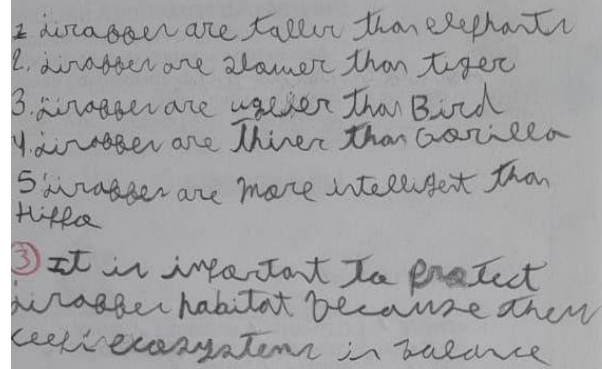 1 Giraffes are taller than elephants
2. Giraffes are slower than tiger
3. Giraffes are uglier than Bird
4. Giraffes are Thiner than Gorilla
5 Giraffes are more intelligent than
Hippo
3 It is important to protect
giraffes habitat because them
keep ecosystems in balance